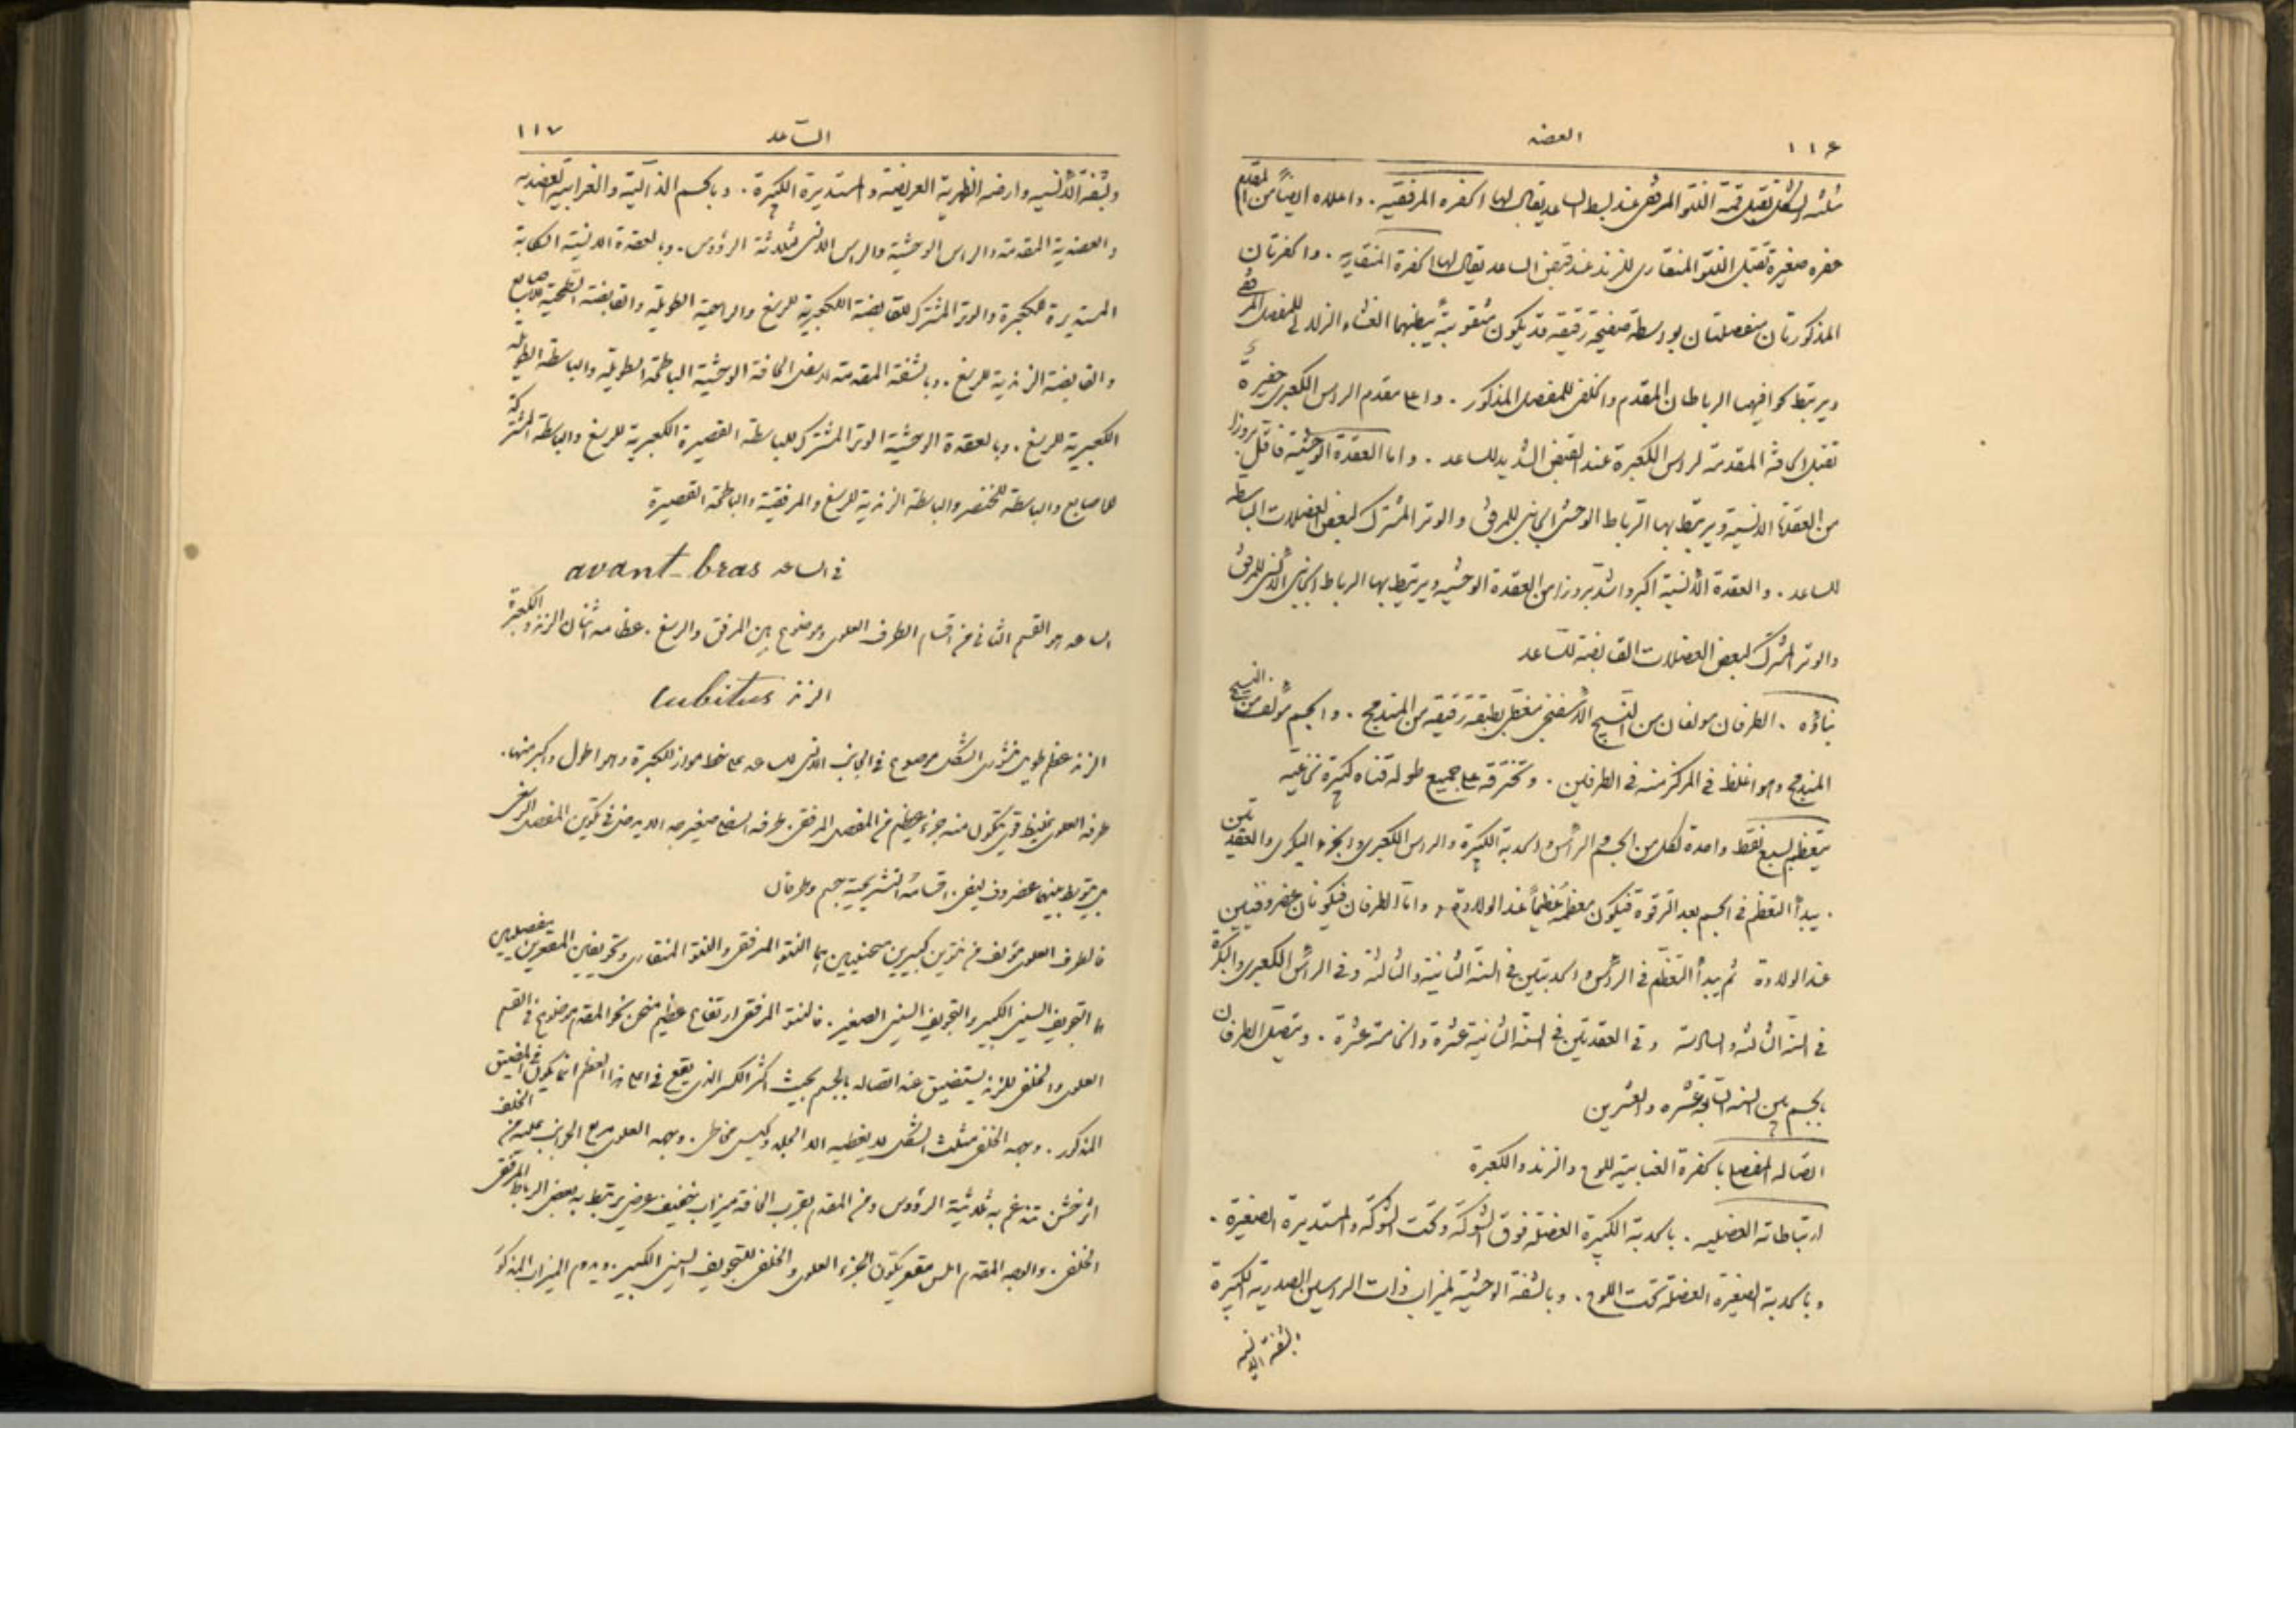 ١١٦ العضد
مثلثة الشكل تقبل قمة النتو المرفقي عند بسط الساعد يقال لها الحفرة المرفقية. واعلاه ايضاً من المقدم
حفرة صغيرة تقبل النتو المنقاري للزند عند قبض الساعد يقال لها الحفرة المنقارية. والحفرتان
المذكورتان منفصلتان بواسطة صفيحة رقيقة قد يكون مثقوبة يبطنهما الغشاء الزلالي للمفصل المرفقي
ويرتبط بحوافيهما الرباطان المقدم والخلفي للمفصل المذكور. واعلى مقدم الراس الكعبري حفيرة
تقبل الحافة المقدمة لراس الكعبرة عند القبض الشديد للساعد. واما العقدة الوحشية فاقل بروزا
من العقدة الانسية ويرتبط بها الرباط الوحشي الجانبي للمرفق والوتر المشترك لبعض العضلات الباسطة
للساعد. والعقدة الانسية اكبر واشد بروزا من العقدة الوحشيه ويرتبط بها الرباط الجانبي الانسي للمرفق
والوتر المشترك لبعض العضلات القابضة للساعد
بناؤه. الطرفان مولفان من النسيج الاسفنجي مغطى بطبقة رقيقة من المندمج. والجسم مؤلف من النسيج
المندمج وهو اغلظ في المركز منه في الطرفين. وتخترقه على جميع طوله قناة كبيرة نخاعية
يتعظم بسبع نقط واحدة لكل من الجسم والراس والحدبة الكبيرة والراس الكعبري والجزء البكري والعقدتين
. يبدأ التعظم في الجسم بعد الترقوة فيكون معظمه عظماً عند الولادة، واما الطرفان فيكونان غضروفيين
عند الولادة ثم يبدأ التعظم في الراس والحدبتين في السنة الثانية والثالثة وفي الراس الكعبري والبكرة
في السنة الثالثة والسادسة وفي العقدتين في السنة الثانية عشرة والخامسة عشرة. ويتصل الطرفان
بالجسم بين السنة السابعة عشره والعشرين
اتصاله المفصلي بالحفرة العنابية للوح والزند والكعبرة
ارتباطاته العضليه. بالحدبة الكبيرة العضلة فوق الشوكة وتحت الشوكة والمستديرة الصغيرة.
وبالحدبة الصغيرة العضلة تحت اللوح. وبالشفة الوحشية لميزاب ذات الراسين الصدرية الكبيرة
بالشفة الانسية
الساعد ١١٧
وبشفته الانسية وارضه الظهرية العريضة والمستديرة الكبيرة. وبالجسم الدالية والغرابية العضدية
والعضدية المقدمة والراس الوحشية والراس الانسي لثلاثة الرؤوس. وبالعقدة الانسية الكابة
المستديرة للكعبرة والوتر المشترك للقابضة الكعبرية للرسغ والراحية الطويلة والقابضة السطحية للاصابع
والقابضة الزندية للرسغ. وبالشفة المقدمة لاسفل الحافة الوحشية الباطحة الطويلة والباسطة الطويلة
الكعبرية للرسغ. وبالعقدة الوحشية الوتر المشترك للباسطة القصيرة الكعبرية للرسغ والباسطة المشتركة
للاصابع والباسطة للخنصر والباسطة الزندية للرسغ والمرفقية والباطحة القصيرة
في الساعد avant-bras
الساعد هو القسم الثاني من اقسام الطرف العلوي وموضوع بين المرفق والرسغ. عظامه اثنان الزند والكعبرة
الزند Cubitus
الزند عظم طويل منشوري الشكل موضوع في الجانب الانسي للساعد على خط مواز للكعبرة وهو اطول واكبر منها.
طرفه العلوي غليظ قوي يتكون منه جزء عظيم من المفصل المرفقي. طرفه السفلي صغير جدا لا يدخل في تكوين المفصل الرسغي
بل يتوسط بينهما غضروف ليفي. اقسامه التشريحية جسم وطرفان
فالطرف العلوي مؤلف من نتوين كبيرين منحنيين هما النتو المرفقي والنتو المنقاري وتجويفين مقعرين مفصليين
هما التجويف السيني الكبير والتجويف السيني الصغير. فالنتو المرفقي ارتفاع عظيم منحن نحو المقدم موضوع في القسم
العلوي والخلفي للزند يستضيق عند اتصاله بالجسم بحيث اكثر الكسر الذي يقع في اعلى هذا العظم انما يكون في المضيق
المذكور. وجهه الخلفي مثلث الشكل لا يغطيه الا الجلد وكيس مخاطي. وجهه العلوي مربع الجوانب عليه من الخلف
اثر خشن تندغم به ثلاثية الرؤوس ومن المقدم بقرب الحافة ميزاب خفيف عرضي يرتبط به بعض الرباط المرفقي
الخلفي. والوجه المقدم املس مقعر يكوّن الجزء العلوي والخلفي للتجويف السيني الكبير.